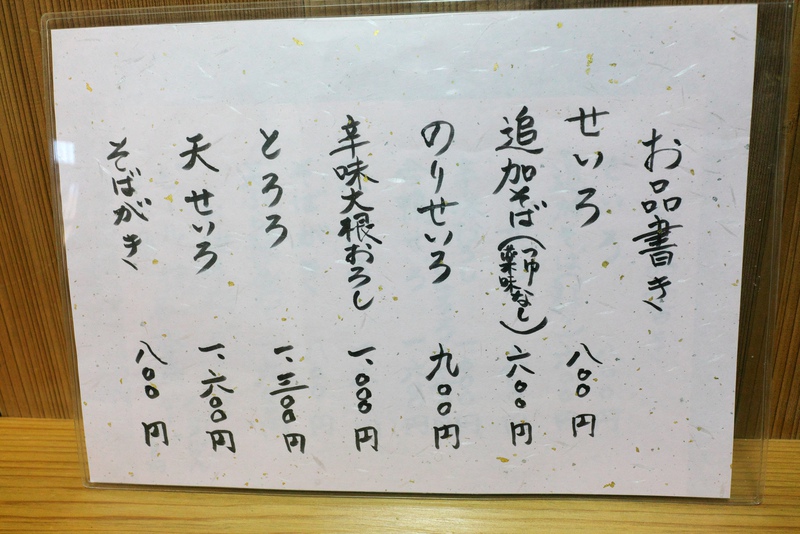 お品書き
せいろ 八〇〇円
追加そば（つゆ薬味なし） 六〇〇円
のりせいろ 九〇〇円
辛味大根おろし 一、〇〇〇円
とろろ 一、三〇〇円
天せいろ 一、六〇〇円
そばがき 八〇〇円